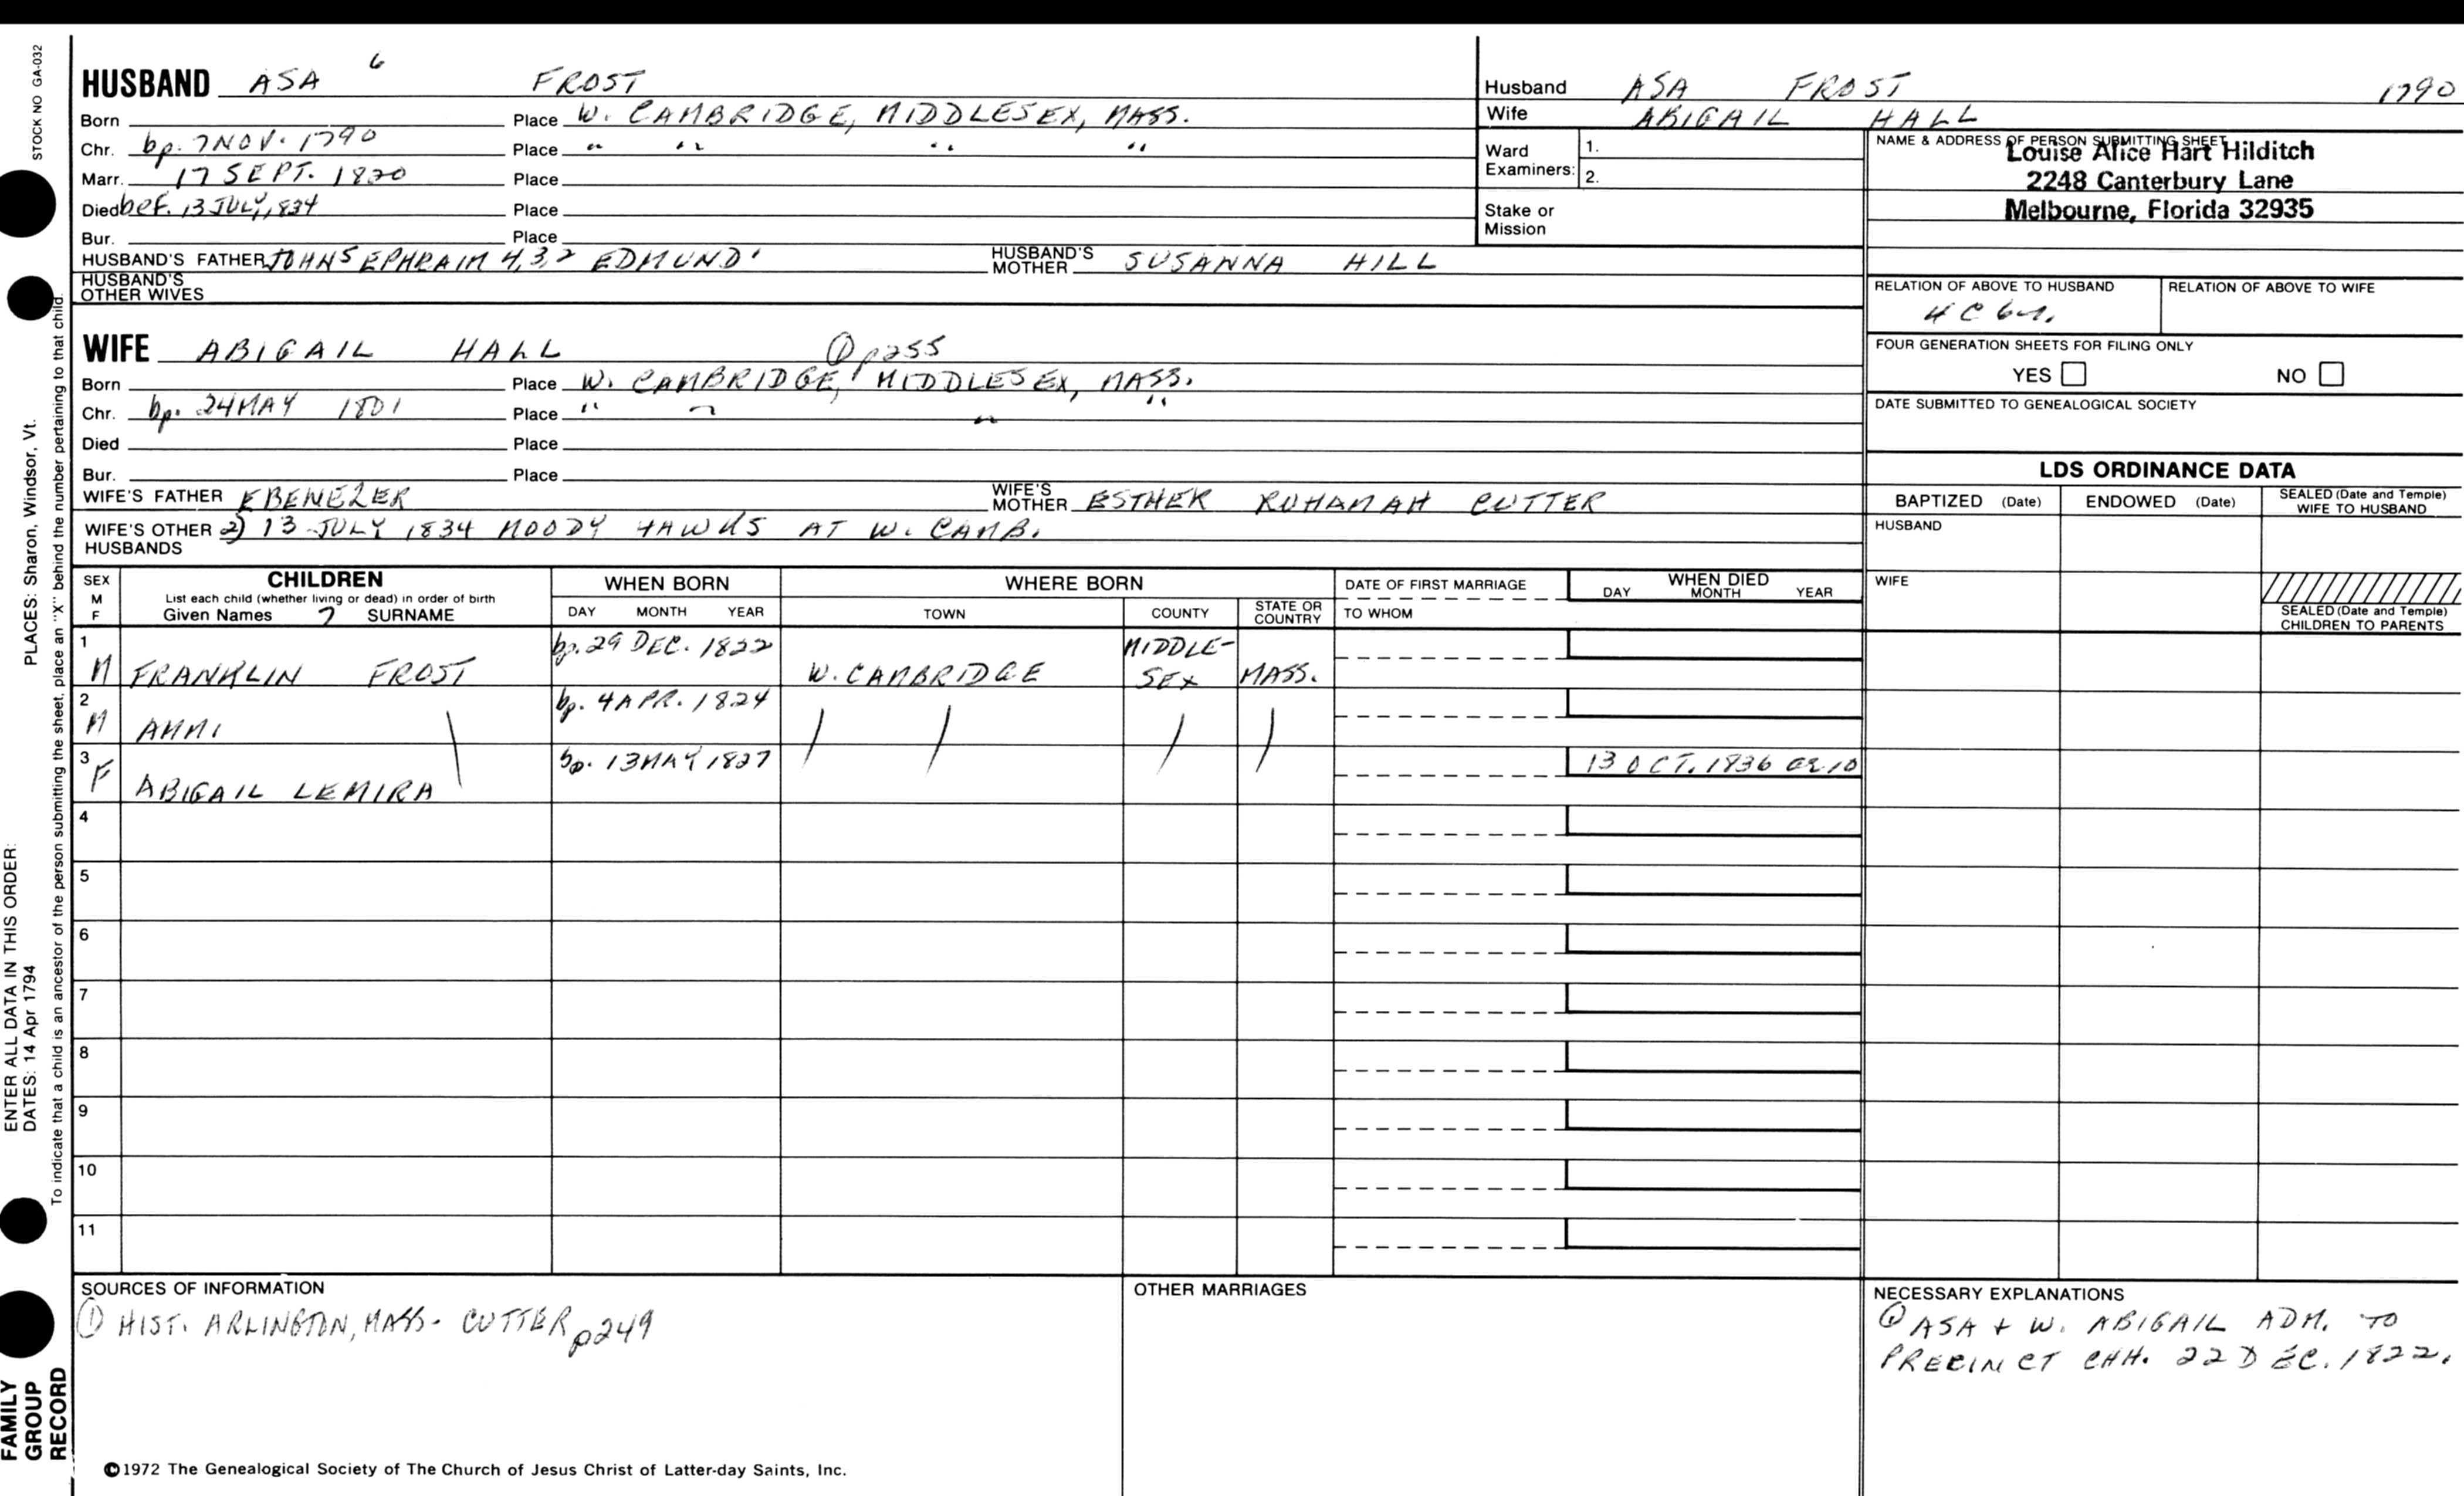 STOCK NO GA-032
HUSBAND ASA 6 FROST
Born Place W. CAMBRIDGE, MIDDLESEX, MASS.
Chr. bp. 7 NOV. 1790 Place " " " "
Marr. 17 SEPT. 1820 Place
Died bef. 13 JULY, 1834 Place
Bur. Place
HUSBAND'S FATHER JOHN5 EPHRAIM 4,3,2 EDMUND1 HUSBAND'S MOTHER SUSANNA HILL
HUSBAND'S OTHER WIVES
Husband ASA FROST 1790
Wife ABIGAIL HALL
Ward Examiners: 1.
2.
Stake or Mission
NAME & ADDRESS OF PERSON SUBMITTING SHEET
Louise Alice Hart Hilditch
2248 Canterbury Lane
Melbourne, Florida 32935
RELATION OF ABOVE TO HUSBAND RELATION OF ABOVE TO WIFE
4 C 6
FOUR GENERATION SHEETS FOR FILING ONLY
YES NO
DATE SUBMITTED TO GENEALOGICAL SOCIETY
WIFE ABIGAIL HALL ① p255
Born Place W. CAMBRIDGE, MIDDLESEX, MASS.
Chr. bp. 24 MAY 1801 Place " " " "
Died Place
Bur. Place
WIFE'S FATHER EBENEZER WIFE'S MOTHER ESTHER RUHAMAH CUTTER
WIFE'S OTHER HUSBANDS 2) 13 JULY 1834 MOODY HAWKS AT W. CAMB.
LDS ORDINANCE DATA
BAPTIZED (Date) ENDOWED (Date) SEALED (Date and Temple) WIFE TO HUSBAND
HUSBAND
WIFE
SEALED (Date and Temple) CHILDREN TO PARENTS
SEX M F CHILDREN WHEN BORN WHERE BORN DATE OF FIRST MARRIAGE WHEN DIED
List each child (whether living or dead) in order of birth
Given Names ? SURNAME DAY MONTH YEAR TOWN COUNTY STATE OR COUNTRY TO WHOM DAY MONTH YEAR
1 M FRANKLIN FROST bp. 29 DEC. 1822 W. CAMBRIDGE MIDDLE-SEX MASS.
2 M AMMI bp. 4 APR. 1824
3 F ABIGAIL LEMIRA bp. 13 MAY 1827 13 OCT. 1836 ae 10
4
5
6
7
8
9
10
11
SOURCES OF INFORMATION
① HIST. ARLINGTON, MASS - CUTTER p249
OTHER MARRIAGES
NECESSARY EXPLANATIONS
① ASA + W. ABIGAIL ADM. TO
PRECINCT CHH. 22 DEC. 1822.
©1972 The Genealogical Society of The Church of Jesus Christ of Latter-day Saints, Inc.
ENTER ALL DATA IN THIS ORDER:
DATES: 14 Apr 1794 PLACES: Sharon, Windsor, Vt.
To indicate that a child is an ancestor of the person submitting the sheet, place an "X" behind the number pertaining to that child.
FAMILY
GROUP
RECORD